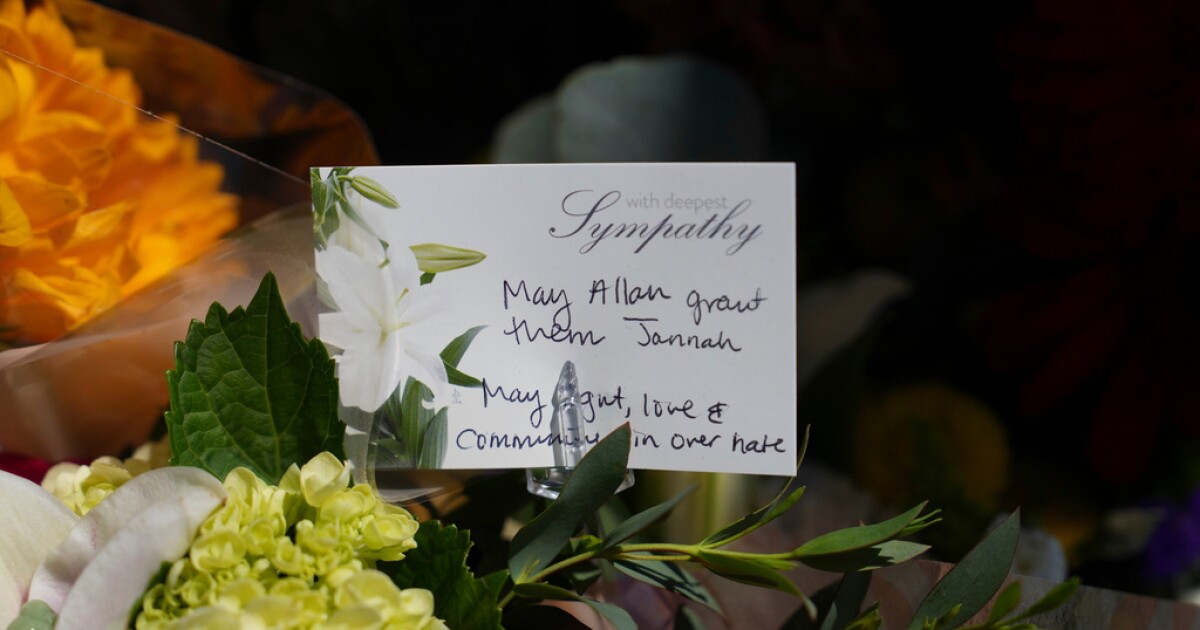 with deepest
Sympathy
May Allah grant
them Jannah
May light, love &
over hate